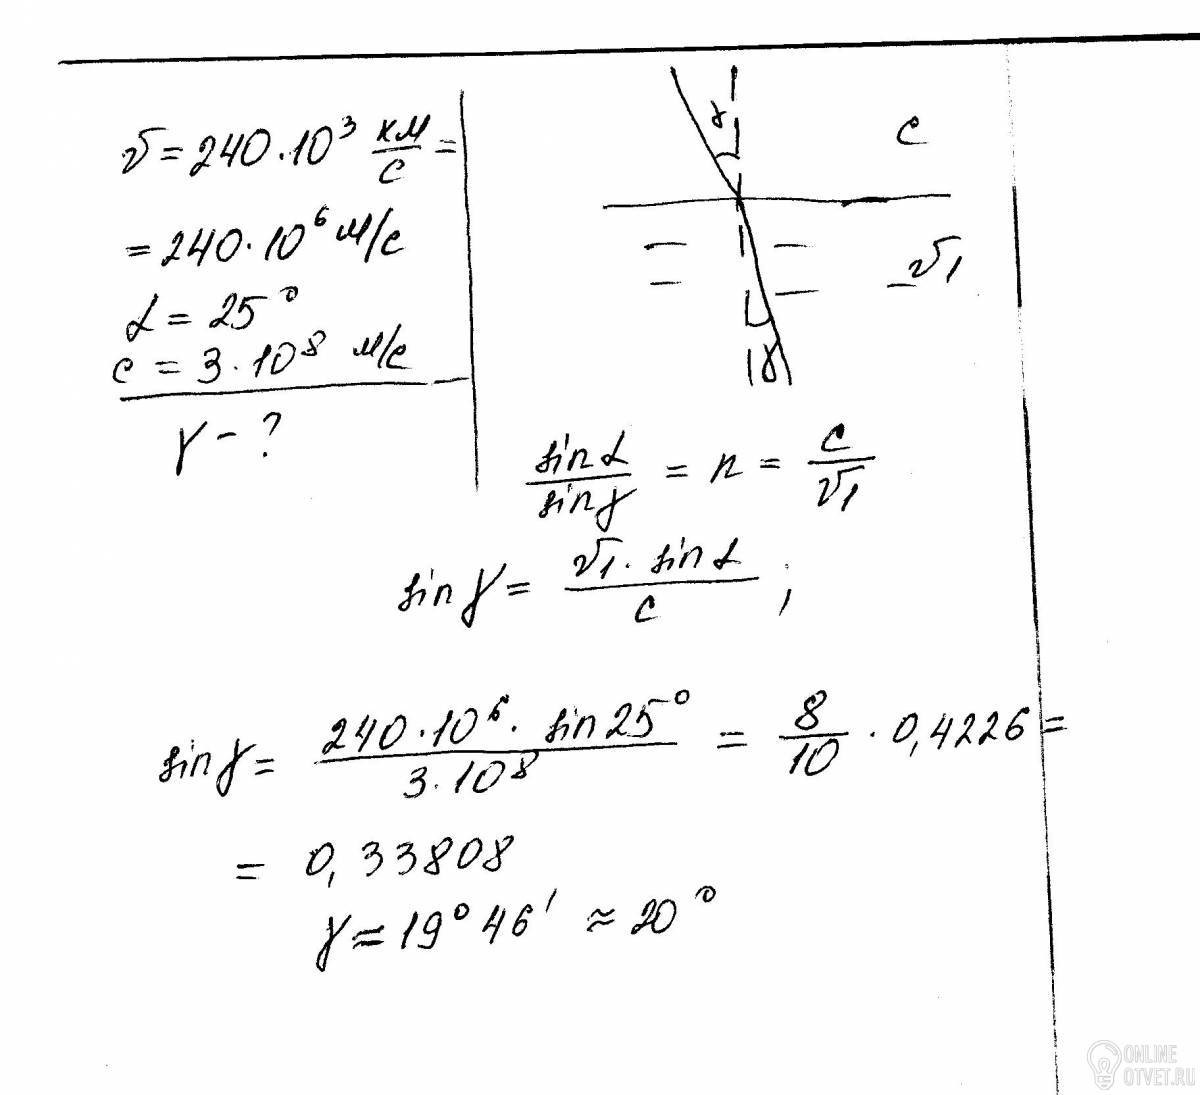 v = 240·10³ км/с =
= 240·10⁶ м/с
α = 25°
c = 3·10⁸ м/с
γ - ?
γ
c
v₁
γ
sin α / sin γ = n = c / v₁
sin γ = v₁· sin α / c ;
sin γ = 240·10⁶· sin 25° / 3·10⁸ = 8/10 · 0,4226 =
= 0,33808
γ ≈ 19° 46' ≈ 20°
ONLINE
OTVET.RU